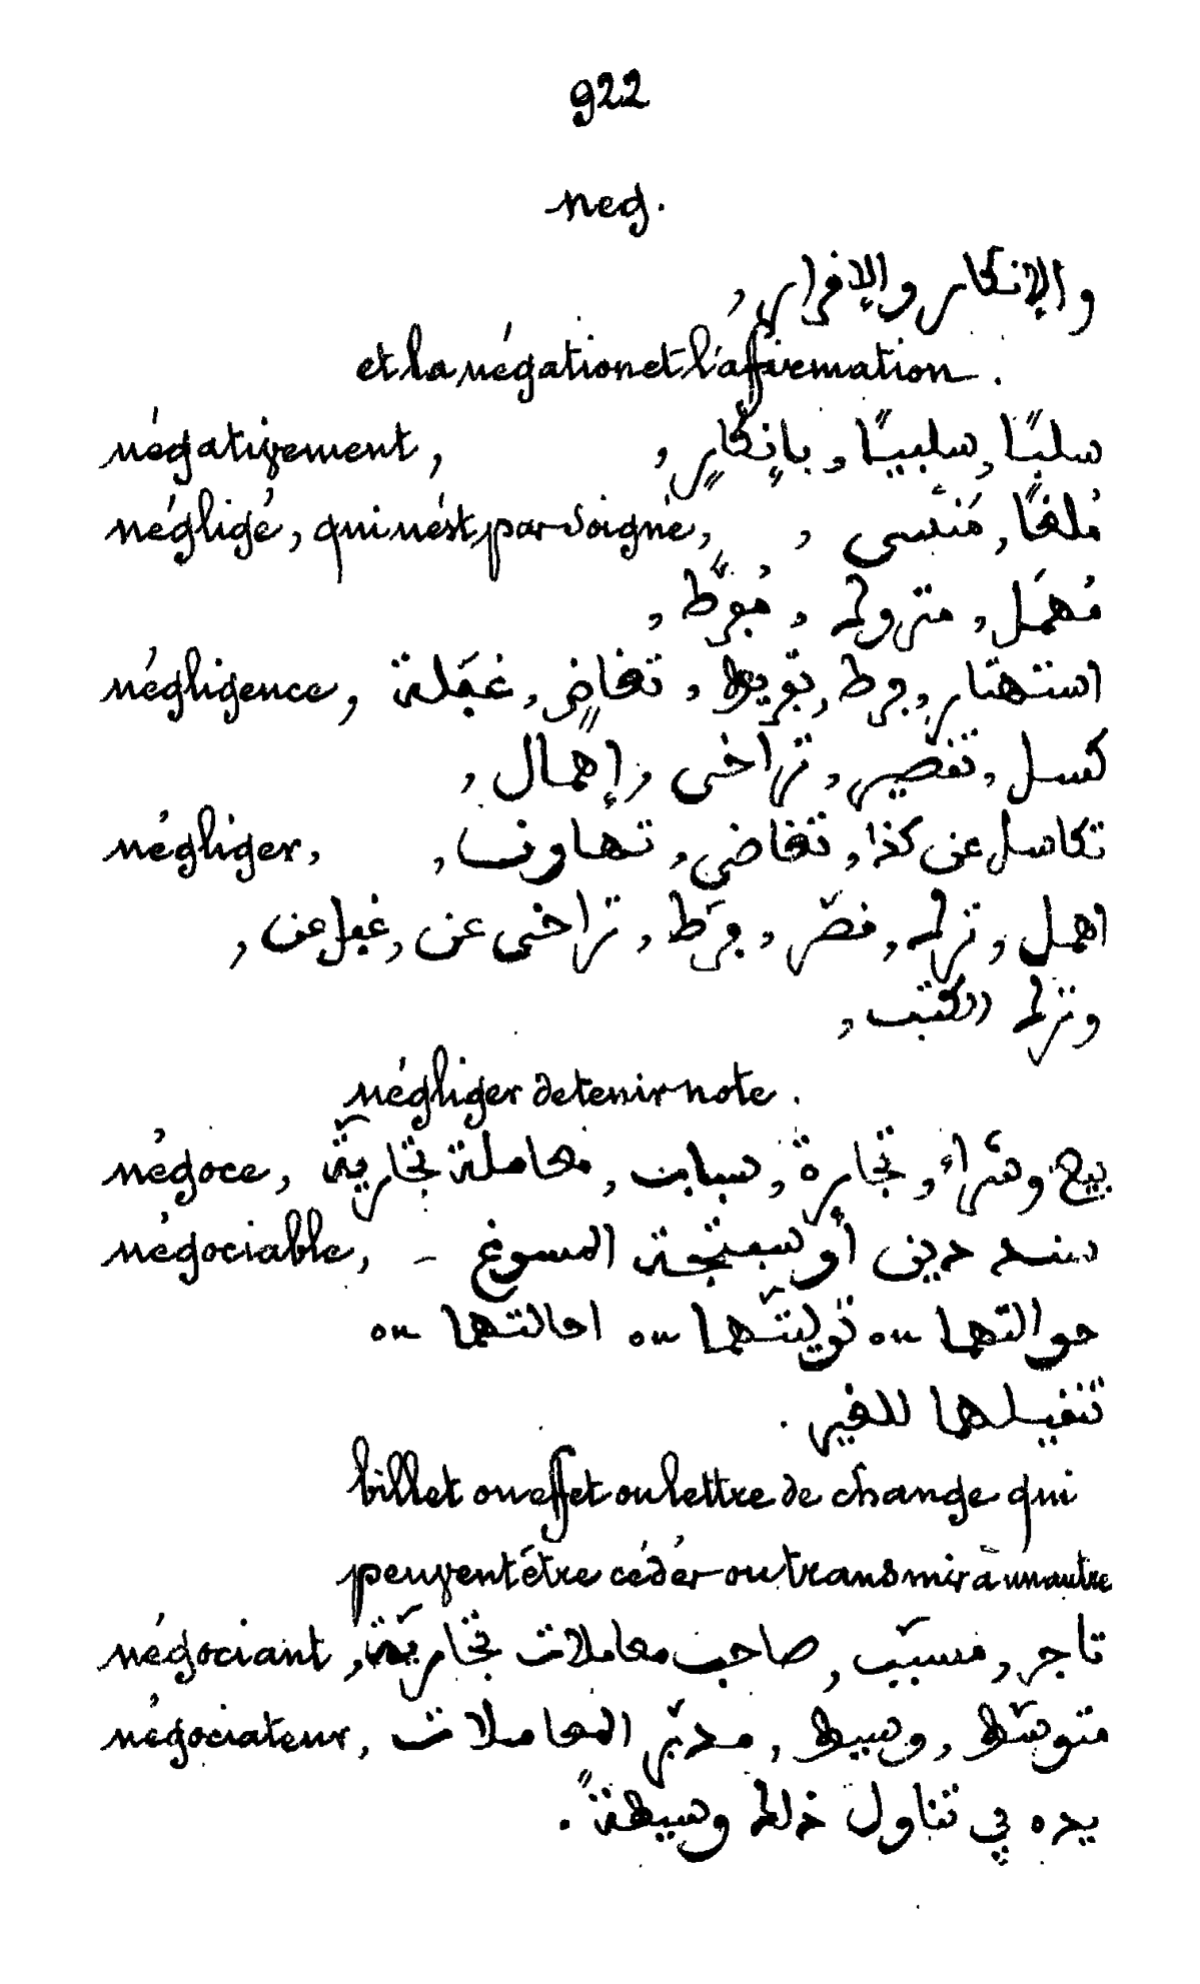 922
neg.
والإنكار والإفرار,
et la négation et l'affirmation.
négativement, سلبًا, سلبيًا, بإنكارٍ,
négligé, qui n'est pas soigné, مُلغًا, مَنسى,
مُهمَل, متروك, مُفرَّط,
négligence, استهتار, فرط, تفريط, تغاضٍ, غَفلة
كسل, تفصير, تراخى, إهمال,
négliger, تكاسل عن كذا, تغاضى, تهاون,
اهمل, ترك, فصّر, فرّط, تراخى عن, غفل عن,
وترك الكتب,
négliger de tenir note.
négoce, بيع وشراء, تجارة, سبابت, معاملة تجاريّة
négociable, - سند دين أو سفتجة المسوغ
حوالتها ou توليتها ou احالتها ou
تنفيلها للغير.
billet ou effet ou lettre de change qui
peuvent être cédés ou transmis à un autre
négociant, تاجر, مسبّب, صاحب معاملات تجاريّة
négociateur, متوسّط, وسيط, مدبّر المعاملات
يده في تناول ذلك وسيطةً.